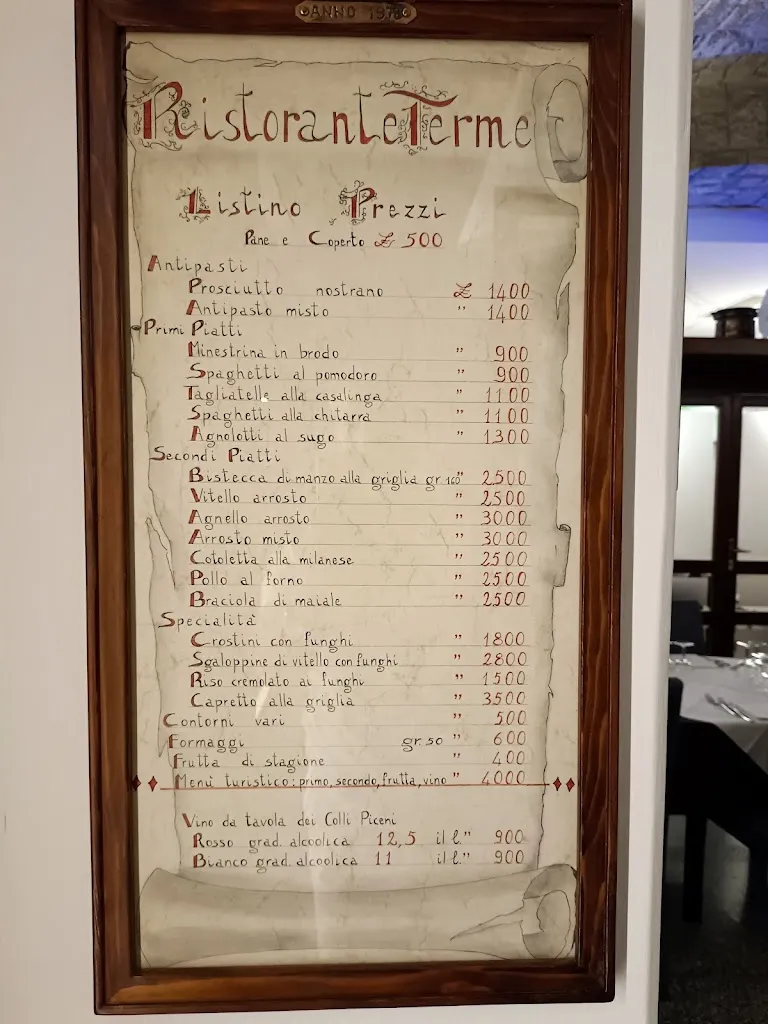 ANNO 1978
Ristorante Terme
Listino Prezzi
Pane e Coperto £ 500
Antipasti
Prosciutto nostrano £ 1400
Antipasto misto " 1400
Primi Piatti
Minestrina in brodo " 900
Spaghetti al pomodoro " 900
Tagliatelle alla casalinga " 1100
Spaghetti alla chitarra " 1100
Agnolotti al sugo " 1300
Secondi Piatti
Bistecca di manzo alla griglia gr 160 " 2500
Vitello arrosto " 2500
Agnello arrosto " 3000
Arrosto misto " 3000
Cotoletta alla milanese " 2500
Pollo al forno " 2500
Braciola di maiale " 2500
Specialità
Crostini con funghi " 1800
Sgaloppine di vitello con funghi " 2800
Riso cremolato ai funghi " 1500
Capretto alla griglia " 3500
Contorni vari " 500
Formaggi gr. 50 " 600
Frutta di stagione " 400
Menù turistico: primo, secondo, frutta, vino " 4000
Vino da tavola dei Colli Piceni
Rosso grad. alcoolica 12,5 il l. " 900
Bianco grad. alcoolica 11 il l. " 900